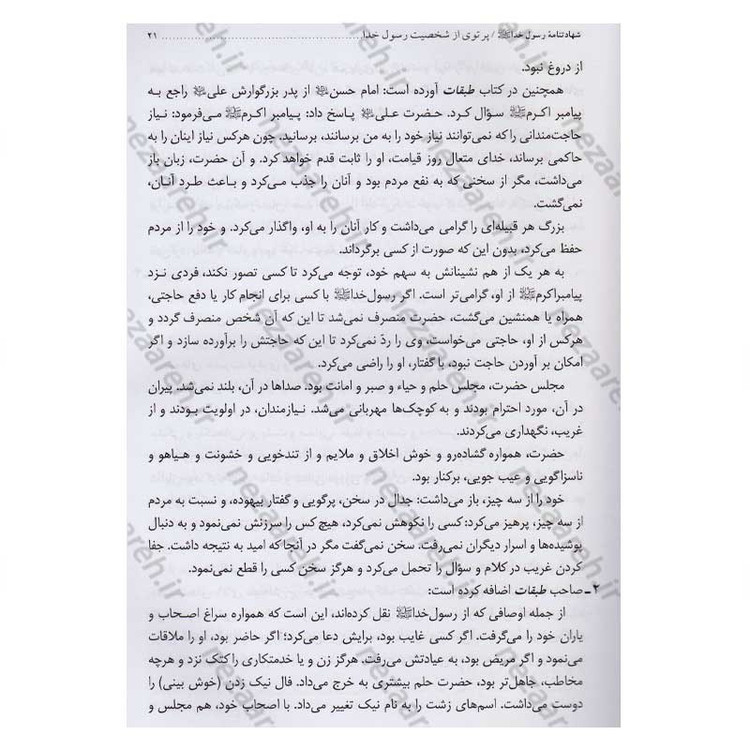 شهادتنامهٔ رسول خداﷺ / پرتوی از شخصیت رسول خدا ................................ ۲۱
از دروغ نبود.
همچنین در کتاب طبقات آورده است: امام حسن از پدر بزرگوارش علی راجع به
پیامبر اکرمﷺ سؤال کرد. حضرت علی پاسخ داد: پیامبر اکرمﷺ می‌فرمود: نیاز
حاجت‌مندانی را که نمی‌توانند نیاز خود را به من برسانند، برسانید. چون هرکس نیاز اینان را به
حاکمی برساند، خدای متعال روز قیامت، او را ثابت قدم خواهد کرد. و آن حضرت، زبان باز
می‌داشت، مگر از سخنی که به نفع مردم بود و آنان را جذب می‌کرد و باعث طرد آنان،
نمی‌گشت.
بزرگ هر قبیله‌ای را گرامی می‌داشت و کار آنان را به او، واگذار می‌کرد. و خود را از مردم
حفظ می‌کرد، بدون این که صورت از کسی برگرداند.
به هر یک از هم نشینانش به سهم خود، توجه می‌کرد تا کسی تصور نکند، فردی نزد
پیامبراکرمﷺ از او، گرامی‌تر است. اگر رسول‌خداﷺ با کسی برای انجام کار یا دفع حاجتی،
همراه یا همنشین می‌گشت، حضرت منصرف نمی‌شد تا این که آن شخص منصرف گردد و
هرکس از او، حاجتی می‌خواست، وی را ردّ نمی‌کرد تا این که حاجتش را برآورده سازد و اگر
امکان بر آوردن حاجت نبود، با گفتار، او را راضی می‌کرد.
مجلس حضرت، مجلس حلم و حیاء و صبر و امانت بود. صداها در آن، بلند نمی‌شد. پیران
در آن، مورد احترام بودند و به کوچک‌ها مهربانی می‌شد. نیازمندان، در اولویت بودند و از
غریب، نگهداری می‌کردند.
حضرت، همواره گشاده‌رو و خوش اخلاق و ملایم و از تندخویی و خشونت و هیاهو و
ناسزاگویی و عیب جویی، برکنار بود.
خود را از سه چیز، باز می‌داشت: جدال در سخن، پرگویی و گفتار بیهوده، و نسبت به مردم
از سه چیز، پرهیز می‌کرد: کسی را نکوهش نمی‌کرد، هیچ کس را سرزنش نمی‌نمود و به دنبال
پوشیده‌ها و اسرار دیگران نمی‌رفت. سخن نمی‌گفت مگر در آنجا که امید به نتیجه داشت. جفا
کردن غریب در کلام و سؤال را تحمل می‌کرد و هرگز سخن کسی را قطع نمی‌نمود.
۲ـ صاحب طبقات اضافه کرده است:
از جمله اوصافی که از رسول‌خداﷺ نقل کرده‌اند، این است که همواره سراغ اصحاب و
یاران خود را می‌گرفت. اگر کسی غایب بود، برایش دعا می‌کرد؛ اگر حاضر بود، او را ملاقات
می‌نمود و اگر مریض بود، به عیادتش می‌رفت. هرگز زن و یا خدمتکاری را کتک نزد و هرچه
مخاطب، جاهل‌تر بود، حضرت حلم بیشتری به خرج می‌داد. فال نیک زدن (خوش بینی) را
دوست می‌داشت. اسم‌های زشت را به نام نیک تغییر می‌داد. با اصحاب خود، هم مجلس و
nezaareh.ir